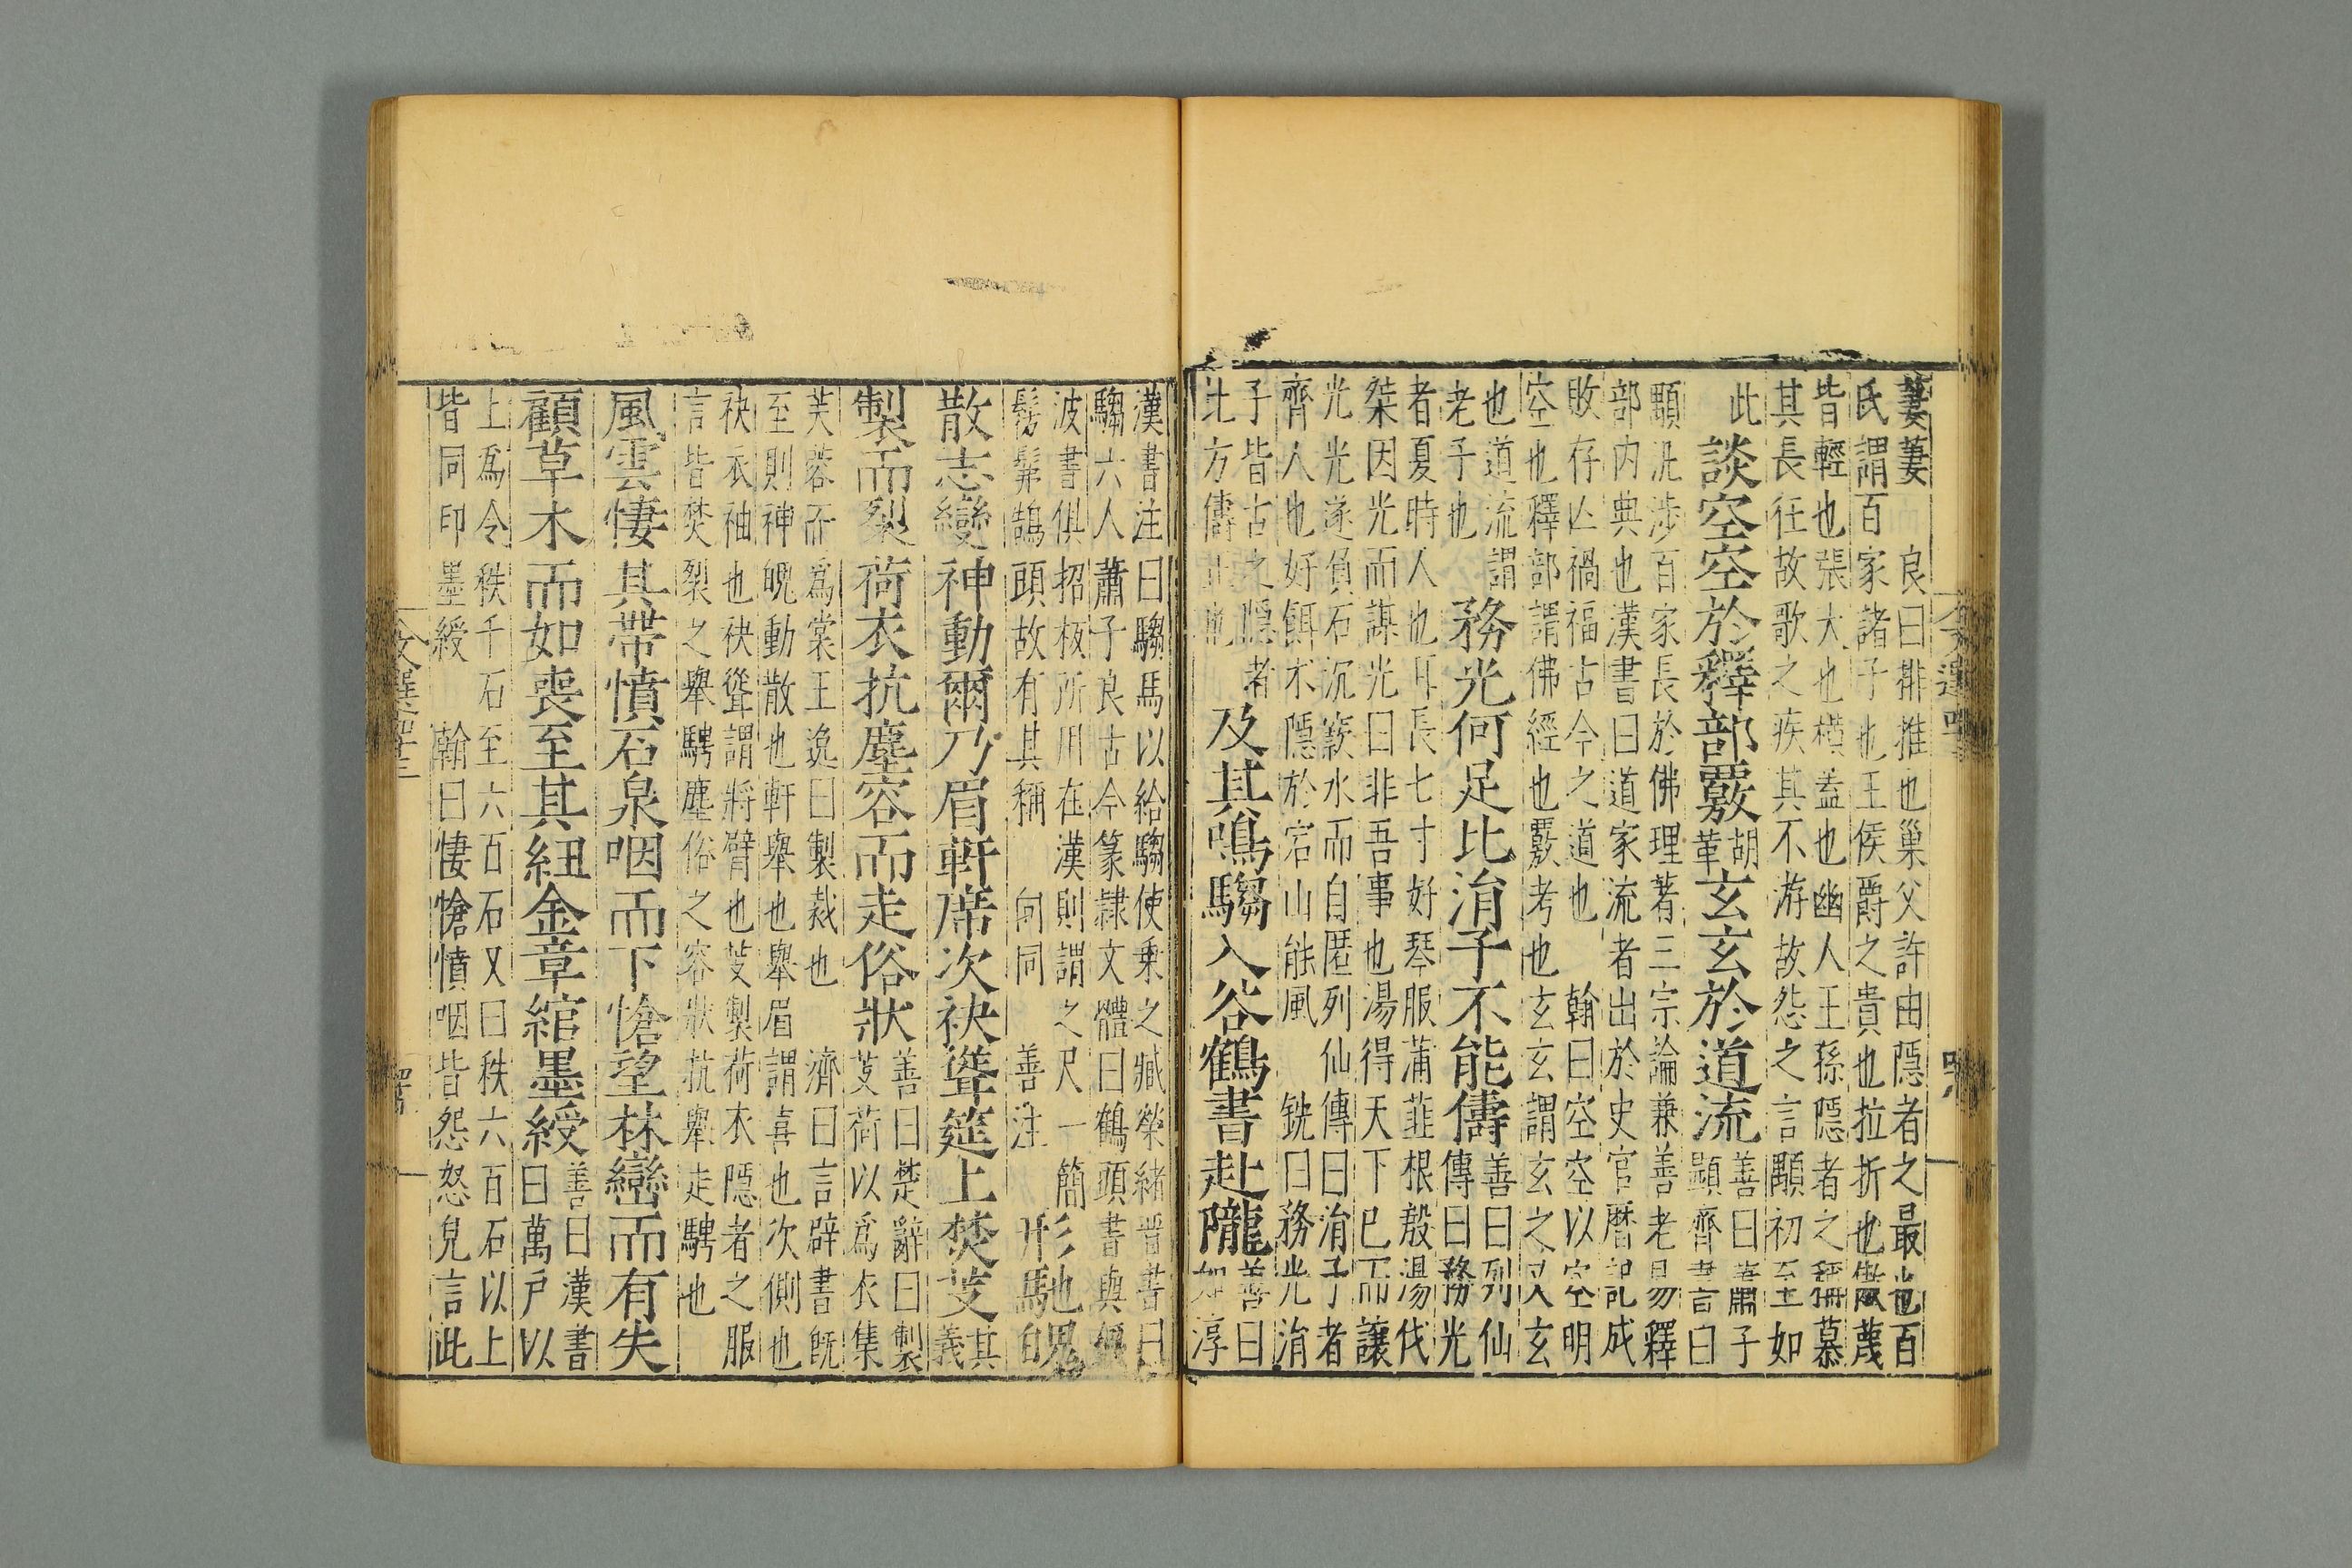 萋萋　良曰排推也巢父許由隱者之最也百
氏謂百家諸子也王侯爵之貴也拉折也傲蔑
皆輕也張大也橫蓋也幽人王孫隱者之稱慕
其長往故歌之疾其不游故怨之言顒初至如
此
談空空於釋部覈
胡
革
玄玄於道流
善曰蕭子
顯齊書言曰
顒汎涉百家長於佛理著三宗論兼善老易釋
部内典也漢書曰道家流者出於史官曆記成
敗存亾禍福古今之道也　翰曰空空以空明
空也釋部謂佛經也覈考也玄玄謂玄之又玄
也道流謂
老子也
務光何足比涓子不能儔
善曰列仙
傳曰務光
者夏時人也耳長七寸好琴服蒲韮根殷湯伐
桀因光而謀光曰非吾事也湯得天下已而讓
光光遂負石沉窾水而自匿列仙傳曰涓子者
齊人也好餌术隱於宕山能風　銑曰務光涓
子皆古之隱者
比方儔
及其鳴騶入谷鶴書赴隴
善曰
如淳
漢書注曰騶馬以給騶使乗之臧榮緒晉書曰
騶六人蕭子良古今篆隸文體曰鶴頭書與偃
波書俱招板所用在漢則謂之尺一簡
髣髴鵠頭故有其稱　向同善注
形馳魄
散志變神動爾乃眉軒席次袂聳筵上焚芰
其
義
製而裂荷衣抗塵容而走俗狀
善曰楚辭曰製
芰荷以爲衣集
芙蓉而爲裳王逸曰製裁也　濟曰言辟書旣
至則神魄動散也軒舉也舉眉謂喜也次側也
袂衣袖也袂聳謂將臂也芰製荷衣隱者之服
言皆焚裂之舉騁塵俗之容狀抗舉走騁也
風雲悽其帶憤石泉咽而下愴望林巒而有失
顧草木而如喪至其紐金章綰墨綬
善曰漢書
曰萬戶以
上爲令秩千石至六百石又曰秩六百石以上
皆同印墨綬　翰曰悽愴憤咽皆怨怒皃言此